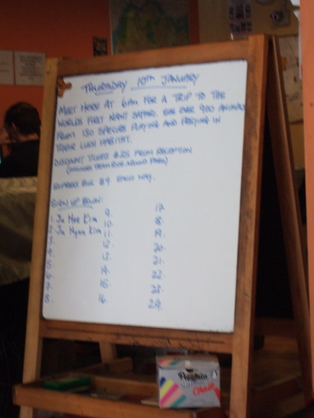 THURSDAY 10TH JANUARY
MEET HERE AT 6AM FOR A TRIP TO THE
WORLDS FIRST NIGHT SAFARI. SEE OVER 900 ANIMALS
FROM 130 SPECIES PLAYING AND
THEIR HABITAT.
DISCOUNT TICKETS $25 FROM RECEPTION
BUS $4 EACH WAY.
SIGN UP BELOW:
1. Ju Hee Kim 9. 17.
2. Ju Hyun Kim 10. 18.
3. 11. 19.
4. 12. 20.
5. 13. 21.
6. 14. 22.
7. 15. 23.
8. 16. 24.